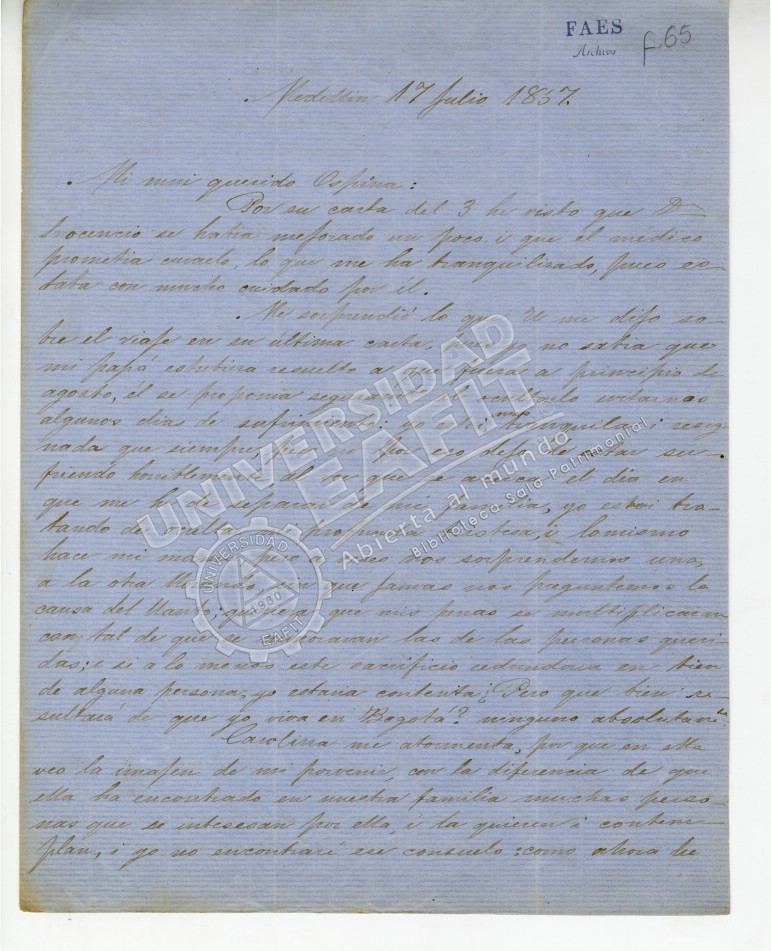 FAES
Archivo
f 65
Medellin 17 Julio 1857.
Mi mui querido Ospina:
Por su carta del 3 he visto que Dn
Inocencio se habia mejorado un poco, i que el médico
prometia curarlo, lo que me ha tranquilizado, pues es-
taba con mucho cuidado por él.
Me sorprendió lo que U me dijo so-
bre el viaje en su última carta, no sabia que
mi papá estubiera resuelto a que fuera a principio de
agosto, él se proponia ocultarlo evitarnos
algunos dias de sufrimiento; yo estoi mas tranquila i resig-
nada que siempre por eso dejo de estar su-
friendo horriblemente al ver que se acerca el dia en
que me he de separar de mi familia, yo estoi tra-
tando de ocultar mi profunda tristeza, i lo mismo
hace mi mamá, pero a veces nos sorprendemos una
a la otra llorando, sin que jamas nos preguntemos la
causa del llanto; quisiera que mis penas se multiplicaran
con tal de que se minoraran las de las personas queri-
das; i si a lo menos este sacrificio redundara en bien
de alguna persona, yo estaria contenta ¿Pero que bien re-
sultará de que yo viva en Bogotá? ninguno absolutamte.
Carolina me atormenta, por que en ella
veo la imajen de mi porvenir, con la diferencia de que
ella ha encontrado en nuestra familia muchas perso-
nas que se interesan por ella, i la quieren i contem-
plan, i yo no encontraré ese consuelo: como ahora he
UNIVERSIDAD
EAFIT
Abierta al mundo
Biblioteca Sala Patrimonial
UNIVERSIDAD
1960
EAFIT